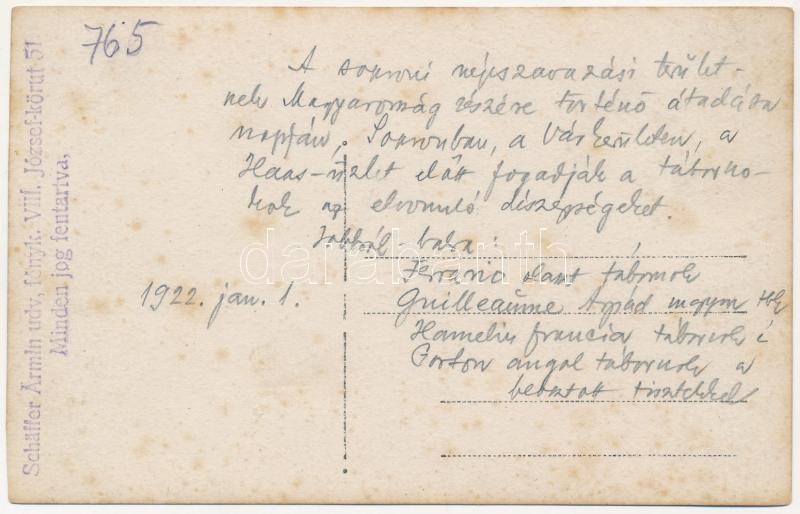 765
A soproni népszavazási terület-
nek Magyarország részére történő átadása
napján, Sopronban, a Várkerületen, a
Haas-üzlet előtt fogadják a táborno-
kok az elvonuló díszegységeket.
Jobbról-balra:
Ferrario olasz tábornok
1922. jan. 1.
Guilleaume Árpád magyar tbk
Hamelin francia tábornok i
Gorton angol tábornok a
beosztott tisztekkel
Schäffer Ármin udv. fényk. VIII. József-körut 51
Minden jog fentartva,
darabanth